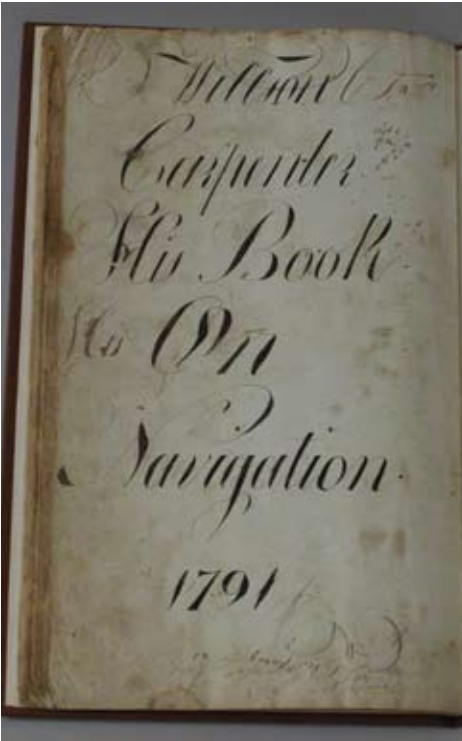 Willson
Carpenter
His Book
His On
Navigation.
1791